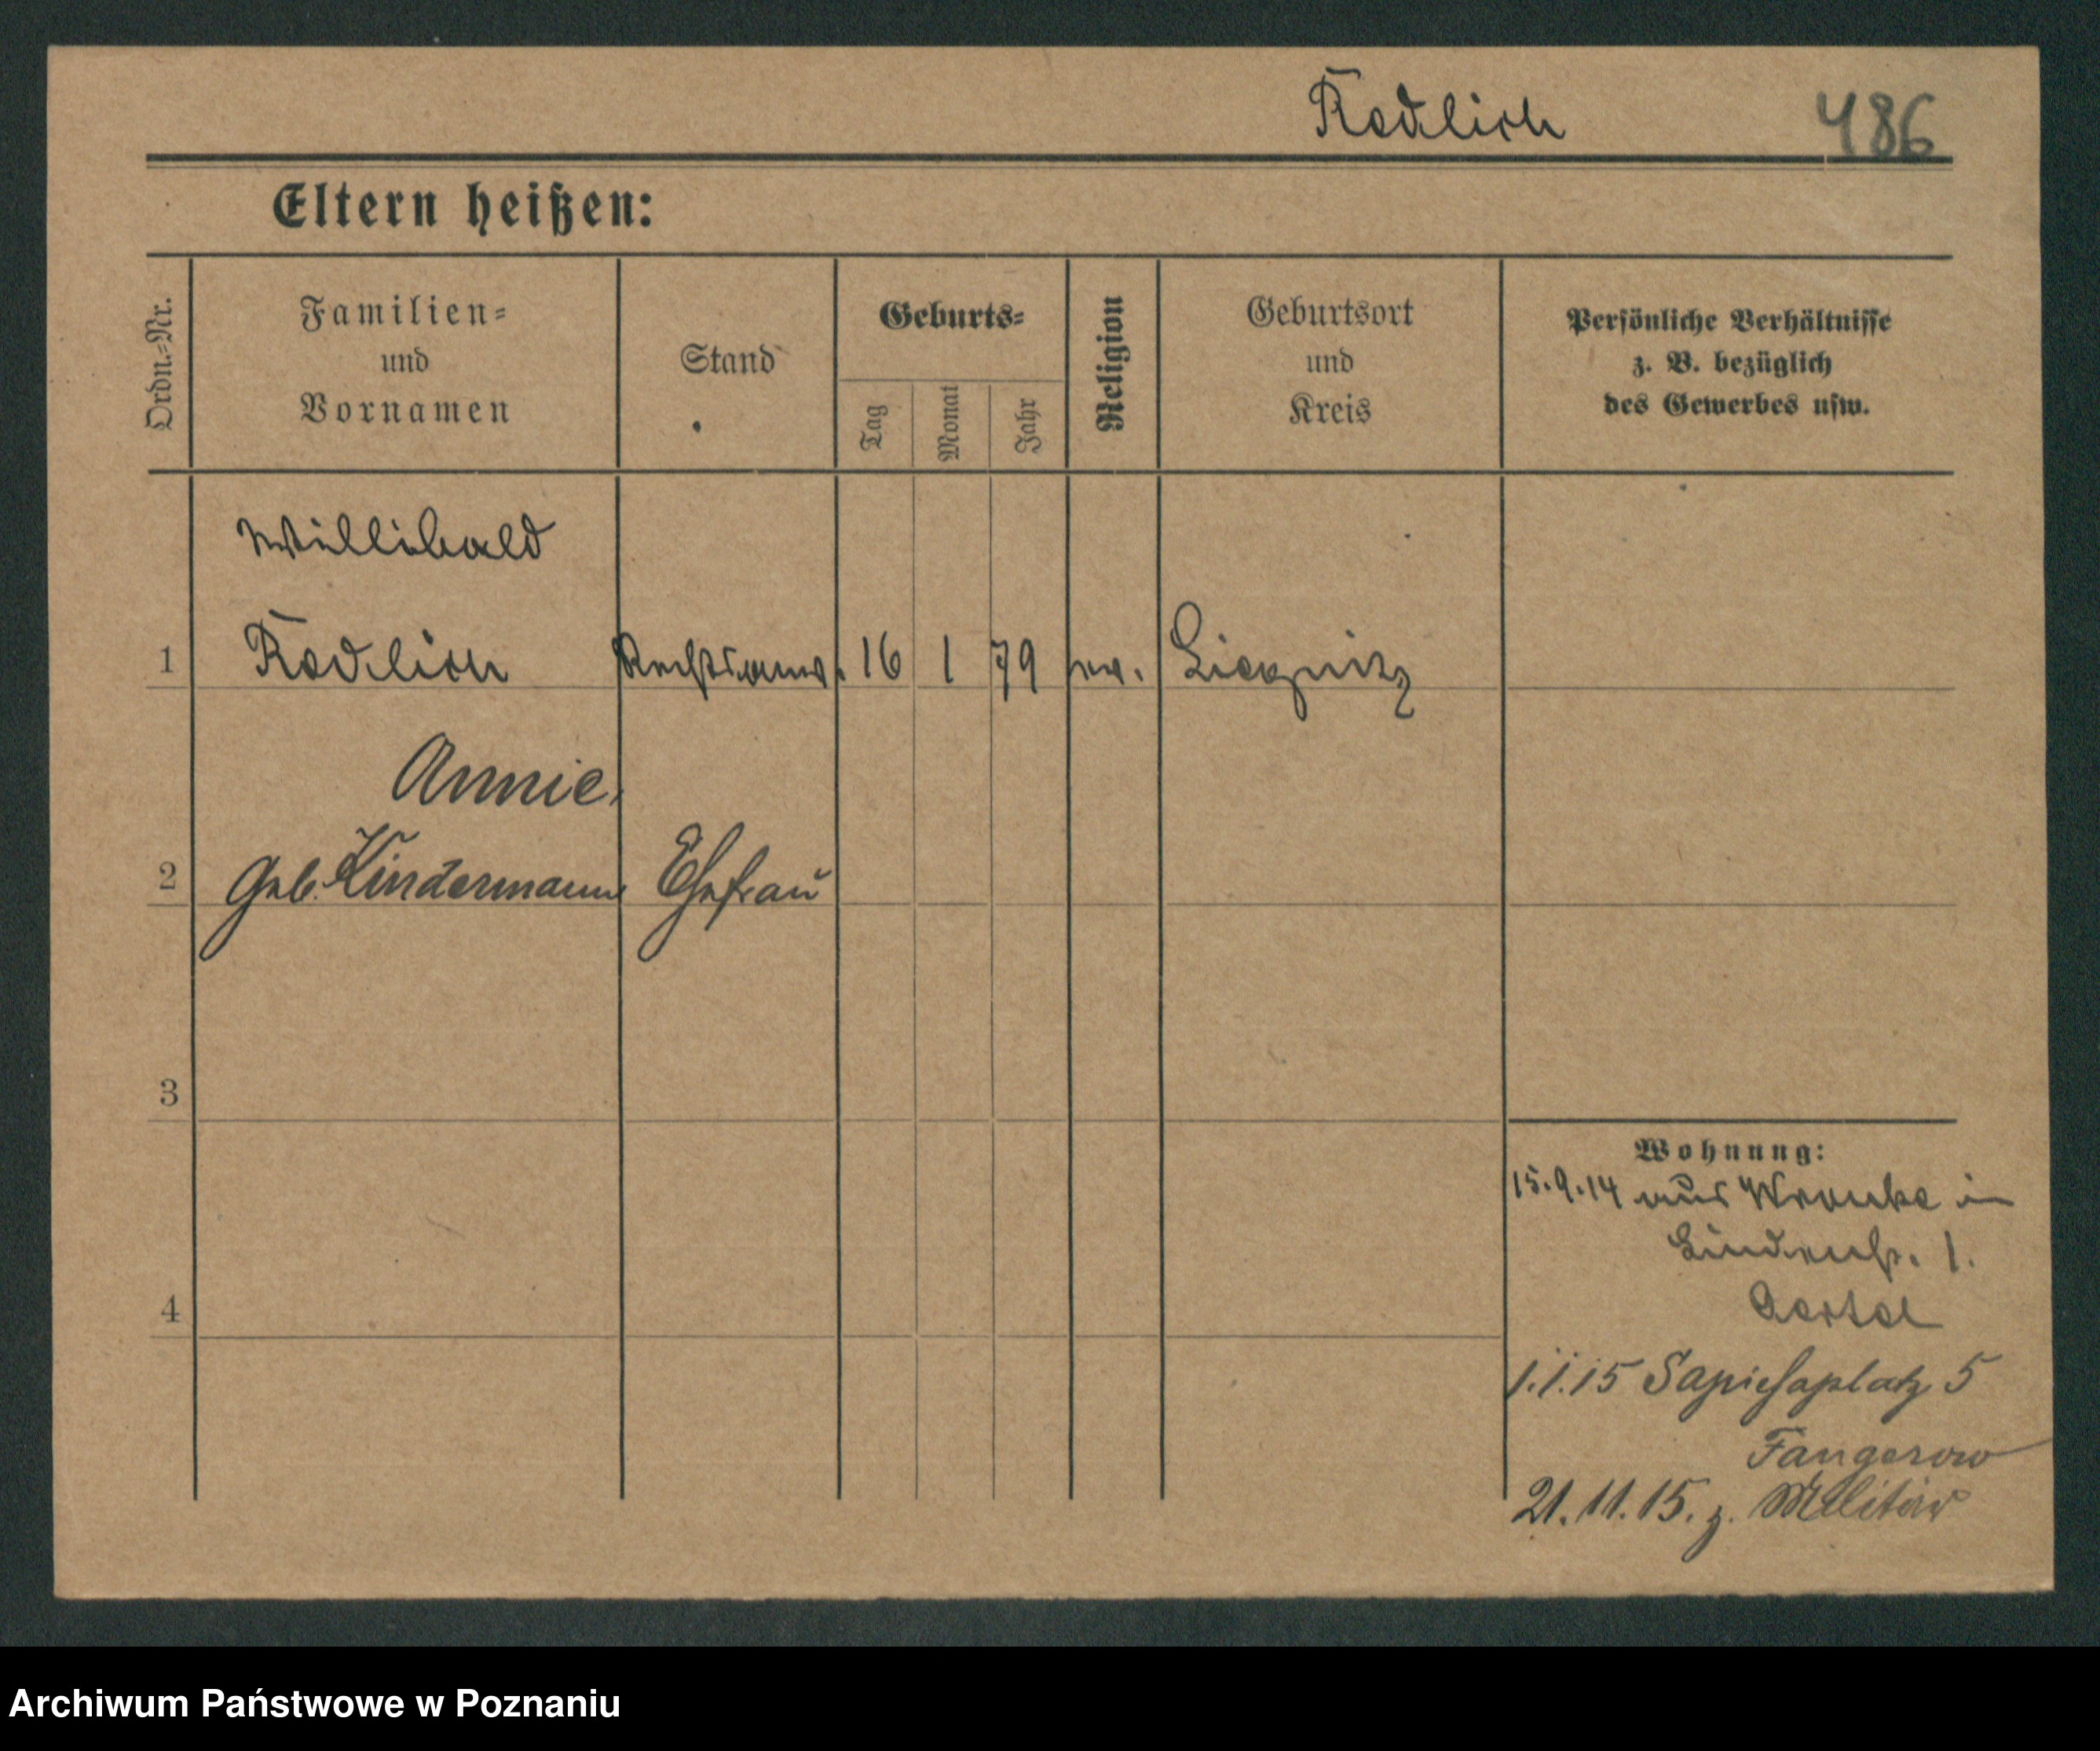 Redlich 486
Eltern heißen:
Ordn.-Nr.
Familien-
und
Vornamen
Stand
Geburts-
Tag
Monat
Jahr
Religion
Geburtsort
und
Kreis
Persönliche Verhältnisse
z. B. bezüglich
des Gewerbes usw.
Willibald
1 Redlich Rechtsanw. 16 1 79 ev. Liegnitz
Annie,
2 Geb. Kindermann Ehefrau
3
Wohnung:
15.9.14 aus Wronke in
Lindenstr. 1.
4
Oertel
1.1.15 Sapiehaplatz 5
Fangerow
21.11.15. z. Militär
Archiwum Państwowe w Poznaniu